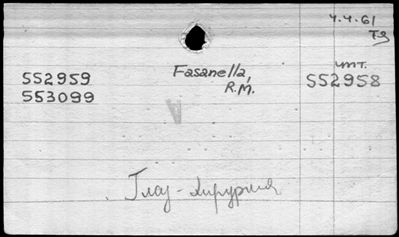 4.4.61
Тз
552959
553099
Fasanella,
R.M.
чит.
552958
Глаз - хирургия